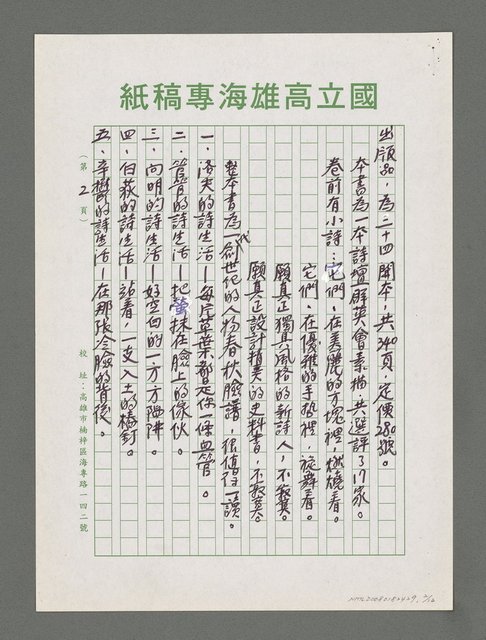 國立高雄海專稿紙
出版的，為二十四開本，共240頁，定價280號。
本書為一本詩壇群英會素描，共選評了17家。
卷前有小詩：它們，在美麗的方塊裡，燃燒着。
它們，在優雅的手勢裡，旋舞着。
願真正獨具風格的新詩人，不寂寞。
願真正設計精美的史料書，不寂寞。
整本書為一創世紀的人物春秋臉譜，很值得一讀。
一、洛夫的詩生活—每片草葉都是你一條血管。
二、管管的詩生活—把螢抹在臉上的傢伙。
三、向明的詩生活—好空白的一方方陷阱。
四、白萩的詩生活—站着，一支入土的樁釘。
五、辛鬱的詩生活—在那張冷臉的背後。
（第2頁）
校址：高雄市楠梓區海專路一四二號
NMTL20080182429, 2/12